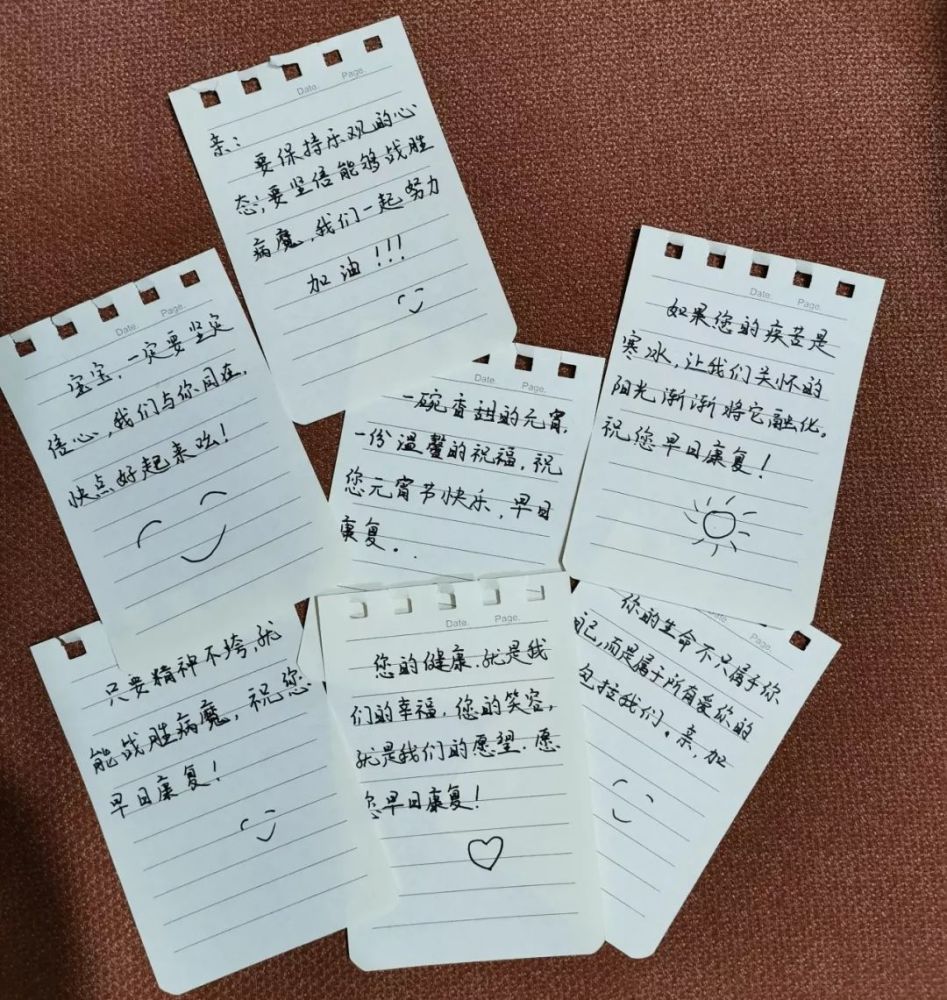 Date. Page.
亲:
要保持乐观的心
态;要坚信能够战胜
病魔,我们一起努力
加油!!!
Date. Page.
宝宝,一定要坚定
信心,我们与你同在,
快点好起来吆!
Date. Page.
一碗香甜的元宵,
一份温馨的祝福,祝
您元宵节快乐,早日
康复。.
Date. Page.
如果您的疾苦是
寒冰,让我们关怀的
阳光渐渐将它融化。
祝您早日康复!
只要精神不垮,就
能战胜病魔,祝您
早日康复!
Date. Page.
您的健康,就是我
们的幸福,您的笑容,
就是我们的愿望.愿
您早日康复!
Page.
你的生命不只属于你
自己,而是属于所有爱你的
包括我们。亲,加